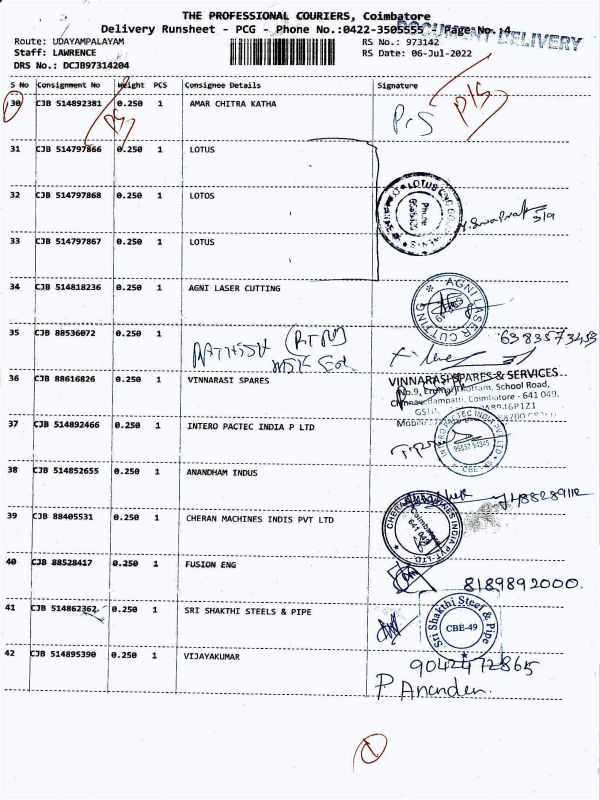 THE PROFESSIONAL COURIERS, Coimbatore
Delivery Runsheet - PCG - Phone No.:0422-3505555 Page No.:4
DOCUMENT DELIVERY
Route: UDAYAMPALAYAM
RS No.: 973142
Staff: LAWRENCE
RS Date: 06-Jul-2022
DRS No.: DCJB97314204
S No Consignment No Weight PCS Consignee Details Signature
30 CJB 514892381 0.250 1 AMAR CHITRA KATHA
31 CJB 514797866 0.250 1 LOTUS
32 CJB 514797868 0.250 1 LOTOS
33 CJB 514797867 0.250 1 LOTUS
34 CJB 514818236 0.250 1 AGNI LASER CUTTING
AGNI LASER CUTTING
35 CJB 88536072 0.250 1
6383573453
36 CJB 88616826 0.250 1 VINNARASI SPARES
VINNARASI SPARES & SERVICES
School Road,
Coimbatore - 641 049.
37 CJB 514892466 0.250 1 INTERO PACTEC INDIA P LTD
INTERO PACTEC INDIA PVT LTD
38 CJB 514852655 0.250 1 ANANDHAM INDUS
39 CJB 88405531 0.250 1 CHERAN MACHINES INDIS PVT LTD
CHERAN MACHINES INDIA PVT. LTD.
Coimbatore
641 049
40 CJB 88528417 0.250 1 FUSION ENG
8189892000.
41 CJB 514862362 0.250 1 SRI SHAKTHI STEELS & PIPE
Sri Shakthi Steel & Pipe
CBE-49
42 CJB 514895390 0.250 1 VIJAYAKUMAR
9042472865
P Ananden.